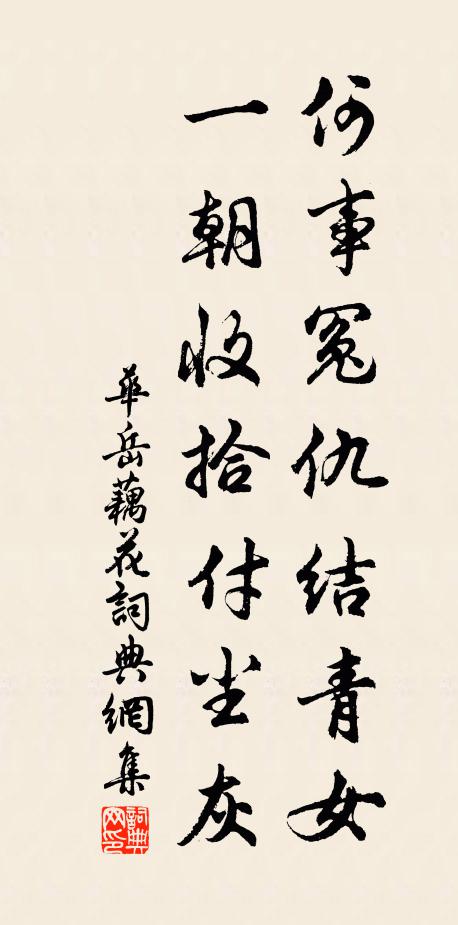 何事冤仇结青女
一朝收拾付尘灰
華岳藕花詞典網集
詞典网印